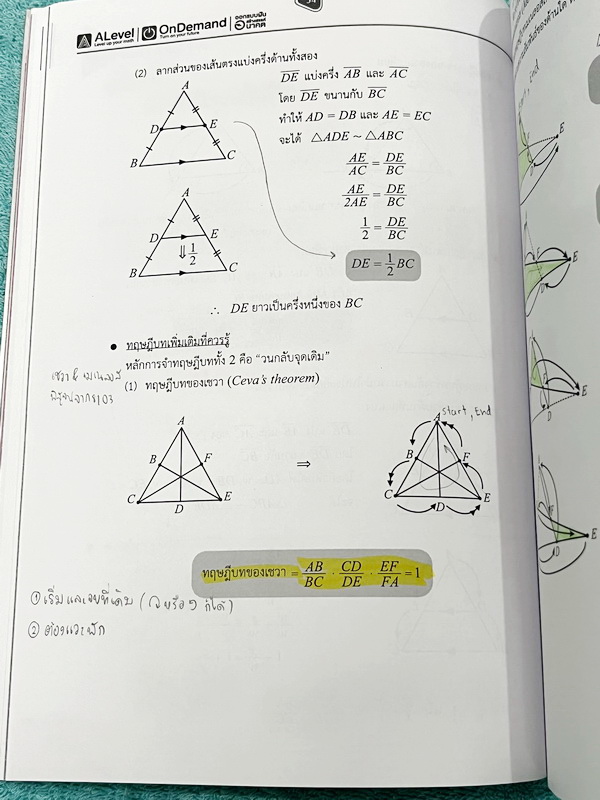 ALevel
Level up your math
OnDemand
Turn on your future
ออกแบบฝัน
อนาคต
(2) ลากส่วนของเส้นตรงแบ่งครึ่งด้านทั้งสอง
DE แบ่งครึ่ง AB และ AC
โดย DE ขนานกับ BC
ทำให้ AD = DB และ AE = EC
จะได้ △ADE ~ △ABC
AE/AC = DE/BC
AE/2AE = DE/BC
1/2 = DE/BC
DE = 1/2 BC
A
D
E
B
C
A
D
E
⇓ 1/2
B
C
∴ DE ยาวเป็นครึ่งหนึ่งของ BC
● ทฤษฎีบทเพิ่มเติมที่ควรรู้
หลักการจำทฤษฎีบททั้ง 2 คือ “วนกลับจุดเดิม”
(1) ทฤษฎีบทของเชวา (Ceva's theorem)
A
B
F
C
D
E
⇒
A start, End
B
F
C
D
E
ทฤษฎีบทของเชวา = AB/BC · CD/DE · EF/FA = 1
① เริ่มและจบที่เดิม
② ต้องแวะพัก
E
E
D
E
D
E